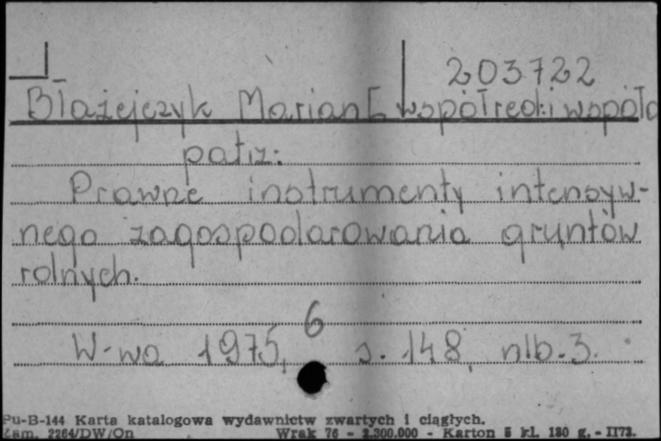 203722
Błażejczyk Marian [współred. i współa
patrz:
Prawne instrumenty intensyw-
nego zagospodarowania gruntów
rolnych.
6
W-wa 1975, s. 148, nlb. 3.
Pu-B-144 Karta katalogowa wydawnictw zwartych i ciągłych.
Zam. 2264/DW/On Wrak 76 - 2.300.000 - Karton 5 kl. 180 g. - II73.